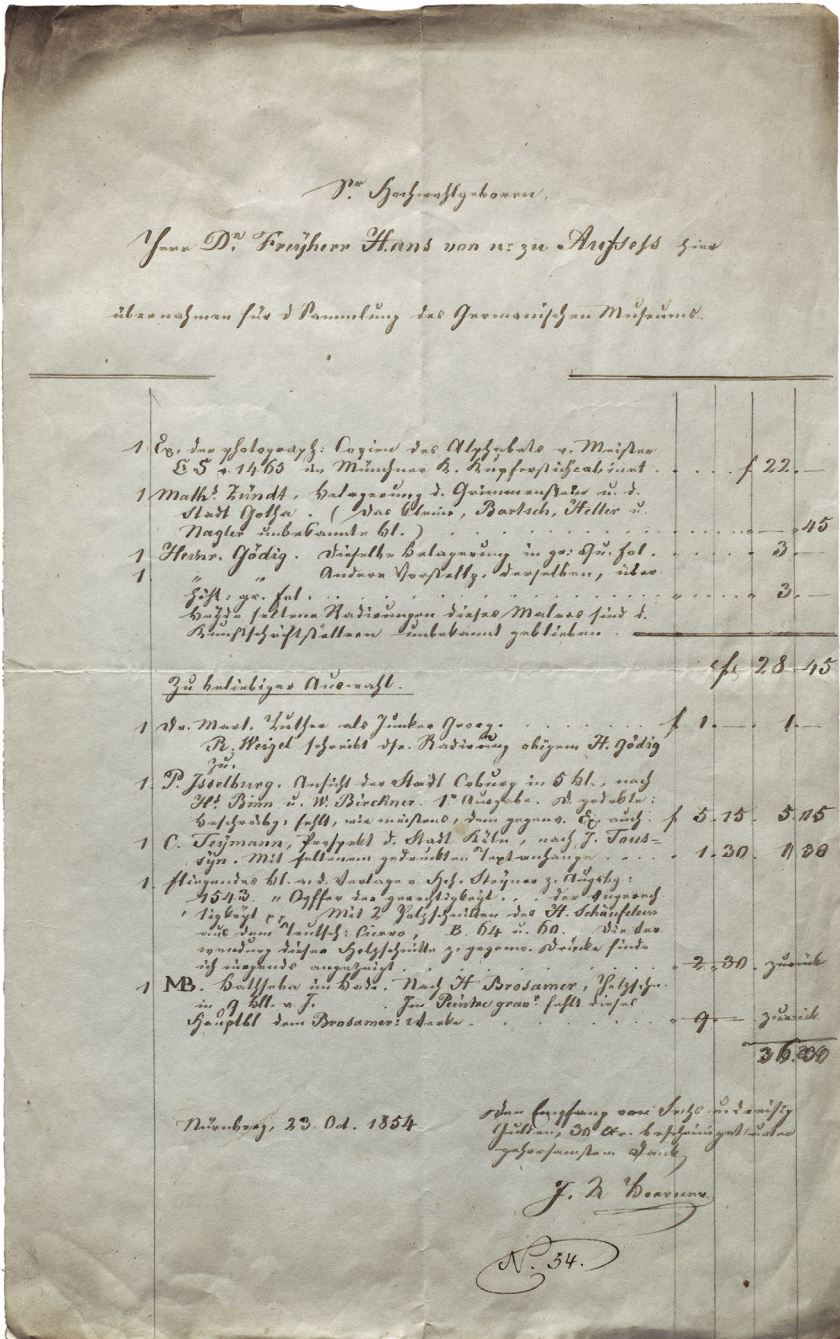 Sr Hochwohlgeboren,
Herr Dr. Freyherr Hans von u: zu Aufsess hier
übernahmen für d Sammlung des Germanischen Museums.
1 Ex. der photograph: Copien des Alphabets v. Meister
E S v. 1465 im Münchner K. Kupferstichcabinet. . . . . f 22. —
1 Math. Zündt, Belagerung d. Grimmenstein u. d.
Stadt Gotha. (Das kleine, Bartsch, Heller u.
Nagler unbekannte bl.) . . . . — . 45
1 Heinr. Gödig. Dieselbe Belagerung in gr: Qu: fol. . . . 3. —
1 " " Andere Vorstellg. derselben, über
Höhe: gr. fol. . . . . " . . . 3. —
Beyde seltene Radirungen dieses Malers sind d.
Kunstschriftstellern unbekannt geblieben.
f 28 45
Zu beliebiger Auswahl.
1 Dr. Mart. Luther als Junker Georg. . . . . f 1. — . 1. —
R. Weigel schreibt dse. Radirung obigem H. Gödig
zu.
1. P. Isselburg. Ansicht der Stadt Coburg in 5 bl., nach
Hs Bien u. W. Birckner. 1e Ausgabe. D. gedrkte:
Beschreibg: fehlt, wie meistens, dem gegenw. Ex. auch. f 5. 15. 5. 15
1 C. Teijmann, Prospekt d. Stadt Köln, nach J. Tous=
sÿn. Mit seltenem gedruckten Textanhange . . . . " 1. 30. 1 30
1 fliegendes bl. a. d. Verlage v. Hch. Steyner z. Augsbg:
1543. " Opffer der gerechtigkeyt . . . der Ungerech
tigkeyt Mit 2 Holzschnitten des H. Schäufelein
aus dem Teutsch: Cicero, B. 64 u. 60. Die Ver
wendung dieser Holzschnitte z. gegenw. Drucke finde
ich nirgends angezeigt. . . . . " 2. 30. zurück
1 MB. Bathseba im Bade. Nach H Brosamer, Holzschn.
in 9 bll. v. J. . Im Peintre grav: fehlt dieses
Hauptbl dem Brosamer: Werke. . . . . " 9. — zurück
36. 30
Nürnberg, 23. Oct. 1854
Den Empfang von Sechs und dreißig
Gulden, 30 Kr. bescheiniget unter
gehorsamstem Dank,
J. A Boerner
No. 54.